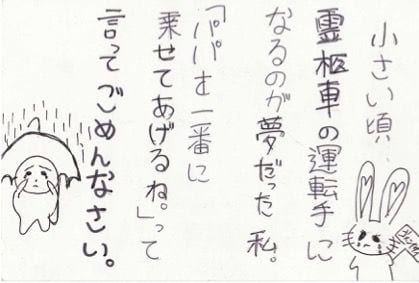 小さい頃、
霊柩車の運転手に
なるのが夢だった私。
「パパを一番に
乗せてあげるね。」って
言ってごめんなさい。